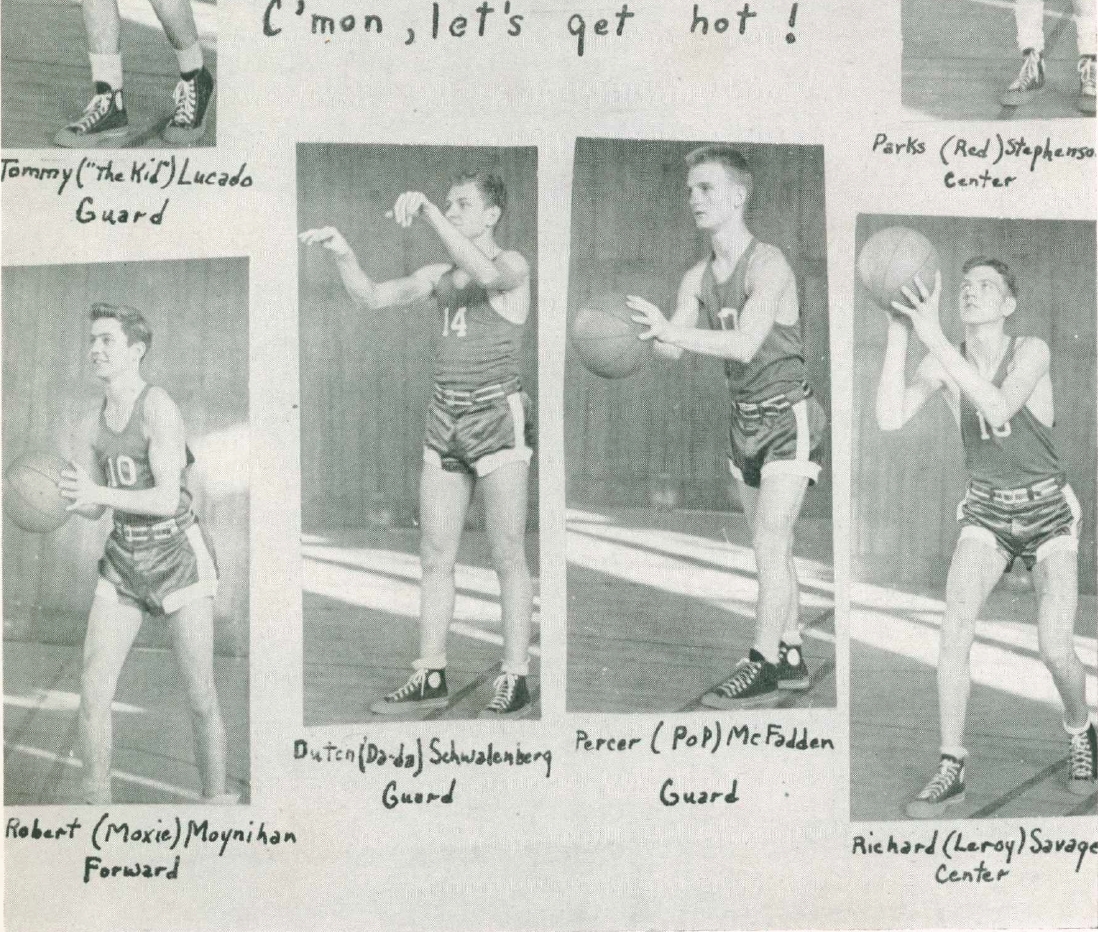 C'mon, let's get hot!
Tommy ("The Kid") Lucado
Guard
Parks (Red) Stephenso
Center
14
10
Dutch (Da-da) Schwalenberg
Guard
Percer (Pop) McFadden
Guard
Robert (Moxie) Moynihan
Forward
Richard (Leroy) Savage
Center